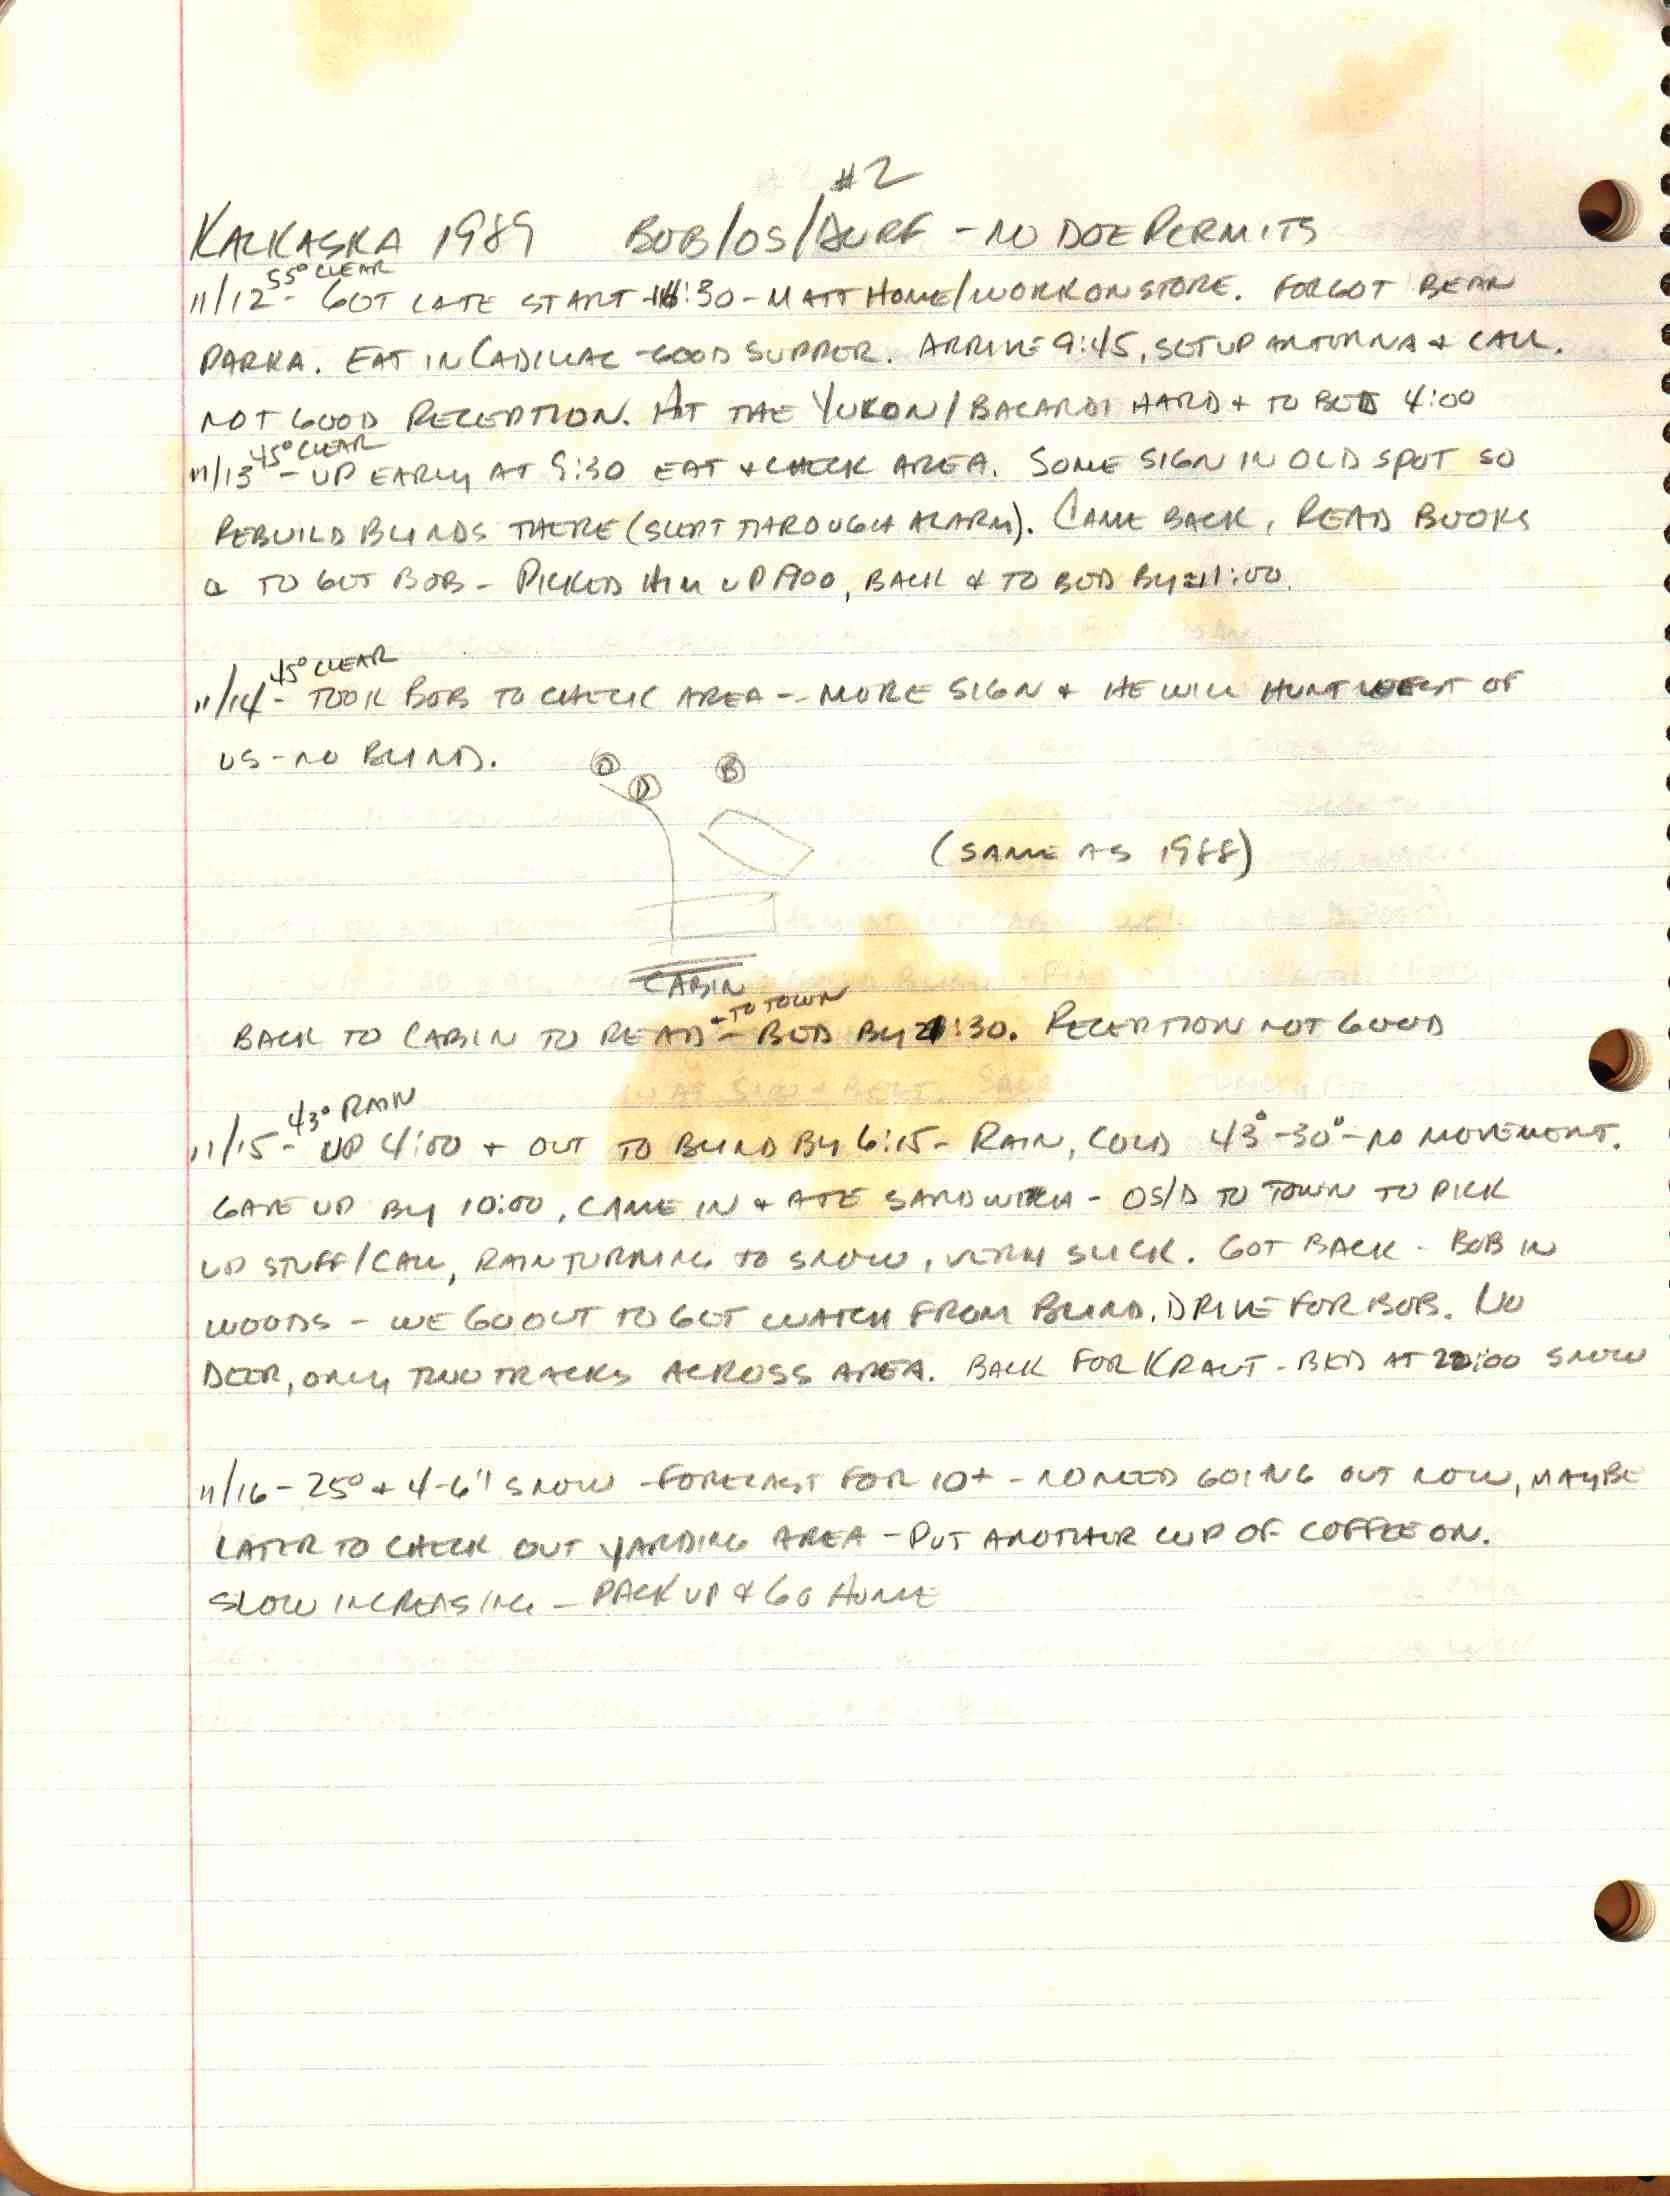 #2
KALKASKA 1989 BOB/OS/DURF - NO DOE PERMITS
55° CLEAR
11/12 - GOT LATE START :30 - MATT HOME/WORK ON STORE. FORGOT BEAN
PARKA. EAT IN CADILLAC - GOOD SUPPER. ARRIVE 9:45, SET UP ANTENNA & CALL.
NOT GOOD RECEPTION. HIT THE YUKON/BACARDI HARD & TO BED 4:00
45° CLEAR
11/13 - UP EARLY AT 9:30 EAT & CHECK AREA. SOME SIGN IN OLD SPOT SO
REBUILD BLINDS THERE (SLEPT THROUGH ALARM). CAME BACK, READ BOOKS
& TO GET BOB - PICKED HIM UP 1900, BACK & TO BED BY 11:00.
45° CLEAR
11/14 - TOOK BOB TO CHECK AREA - MORE SIGN & HE WILL HUNT WEST OF
US - NO BLIND.
O D B
(SAME AS 1988)
CABIN
& TO TOWN
BACK TO CABIN TO READ - BED BY 21:30. RECEPTION NOT GOOD
43° RAIN
11/15 - UP 4:00 & OUT TO BLIND BY 6:15 - RAIN, COLD 43°-30° - NO MOVEMENT.
GAVE UP BY 10:00, CAME IN & ATE SANDWICH - OS/D TO TOWN TO PICK
UP STUFF/CALL, RAIN TURNING TO SNOW, VERY SLICK. GOT BACK - BOB IN
WOODS - WE GO OUT TO GET WATCH FROM BLIND. DRIVE FOR BOB. NO
DEER, ONLY TWO TRACKS ACROSS AREA. BACK FOR KRAUT - BED AT 22:00 SNOW
11/16 - 25° & 4-6" SNOW - FORECAST FOR 10+ - NO NEED GOING OUT NOW, MAYBE
LATER TO CHECK OUT YARDING AREA - PUT ANOTHER CUP OF COFFEE ON.
SLOW INCREASING - PACK UP & GO HOME